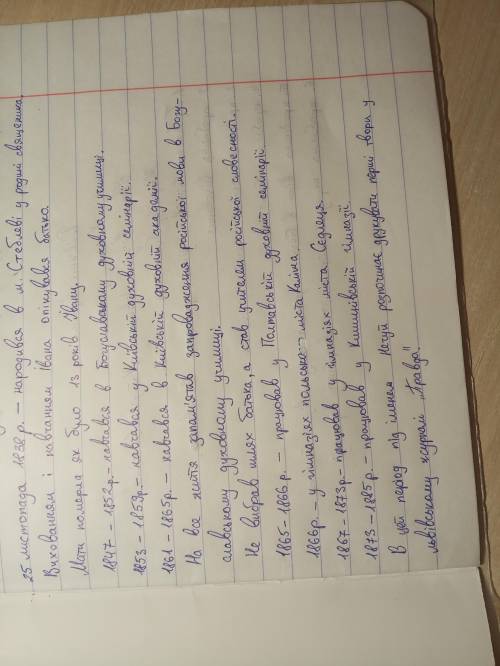 25 листопада 1838 р. – народився в м. Стеблеві у родині священика.
Вихованням і навчанням Івана опікувався батько.
Мати померла як було 13 років Івану.
1847 – 1852р. – навчався в Богуславському духовному училищі.
1853 – 1859р. – навчався у Київській духовній семінарії.
1861 – 1865р. – навчався в Київській духовній академії.
На все життя запам'ятав запровадження російської мови в Богу-
славському духовному училищі.
Не вибрав шлях батька, а став учителем російської словесності.
1865 – 1866р. – працював у Полтавській духовній семінарії
1866р. – у гімназіях польського міста Каліша.
1867 – 1873р – працював у гімназіях міста Седлеця.
1873 – 1885р. – працював у Кишинівській гімназії
В цей період під іменем Нечуй розпочинає друкувати перші твори у
львівському журналі „Правда"